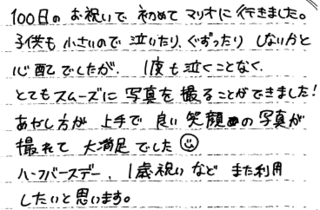 100日のお祝いで初めてマリオに行きました。
子供も小さいので泣いたり、ぐずったりしないかと
心配でしたが、1度も泣くことなく、
とてもスムーズに写真を撮ることができました!
あやし方が上手で良い笑顔の写真が
撮れて大満足でした☺
ハーフバースデー、1歳祝いなどまた利用
したいと思います。